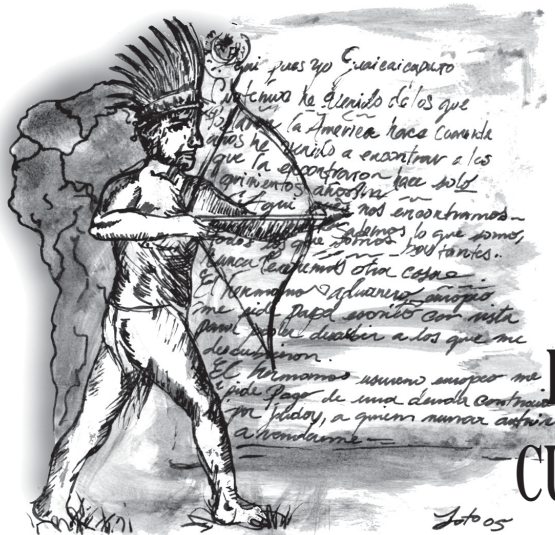 qui pues yo Guaicaipuro
he venido de los que
la America hace cuarenta
años he venido a encontrar a los
que la encontraron hace solo
quinientos años
aqui pues nos encontramos
todos sabemos lo que somos,
que somos bastantes..
nunca tendremos otra cosa.
El hermano aduanero europeo
me pide papel escrito con vista
para poder descubrir a los que me
descubrieron.
El hermano usurero europeo me
pide pago de una deuda contraida
por Judas, a quien nunca autorice
a venderme
CU
Loto 05